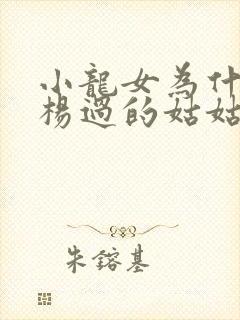 小龍女為什
楊過的姑姑
朱鎔基